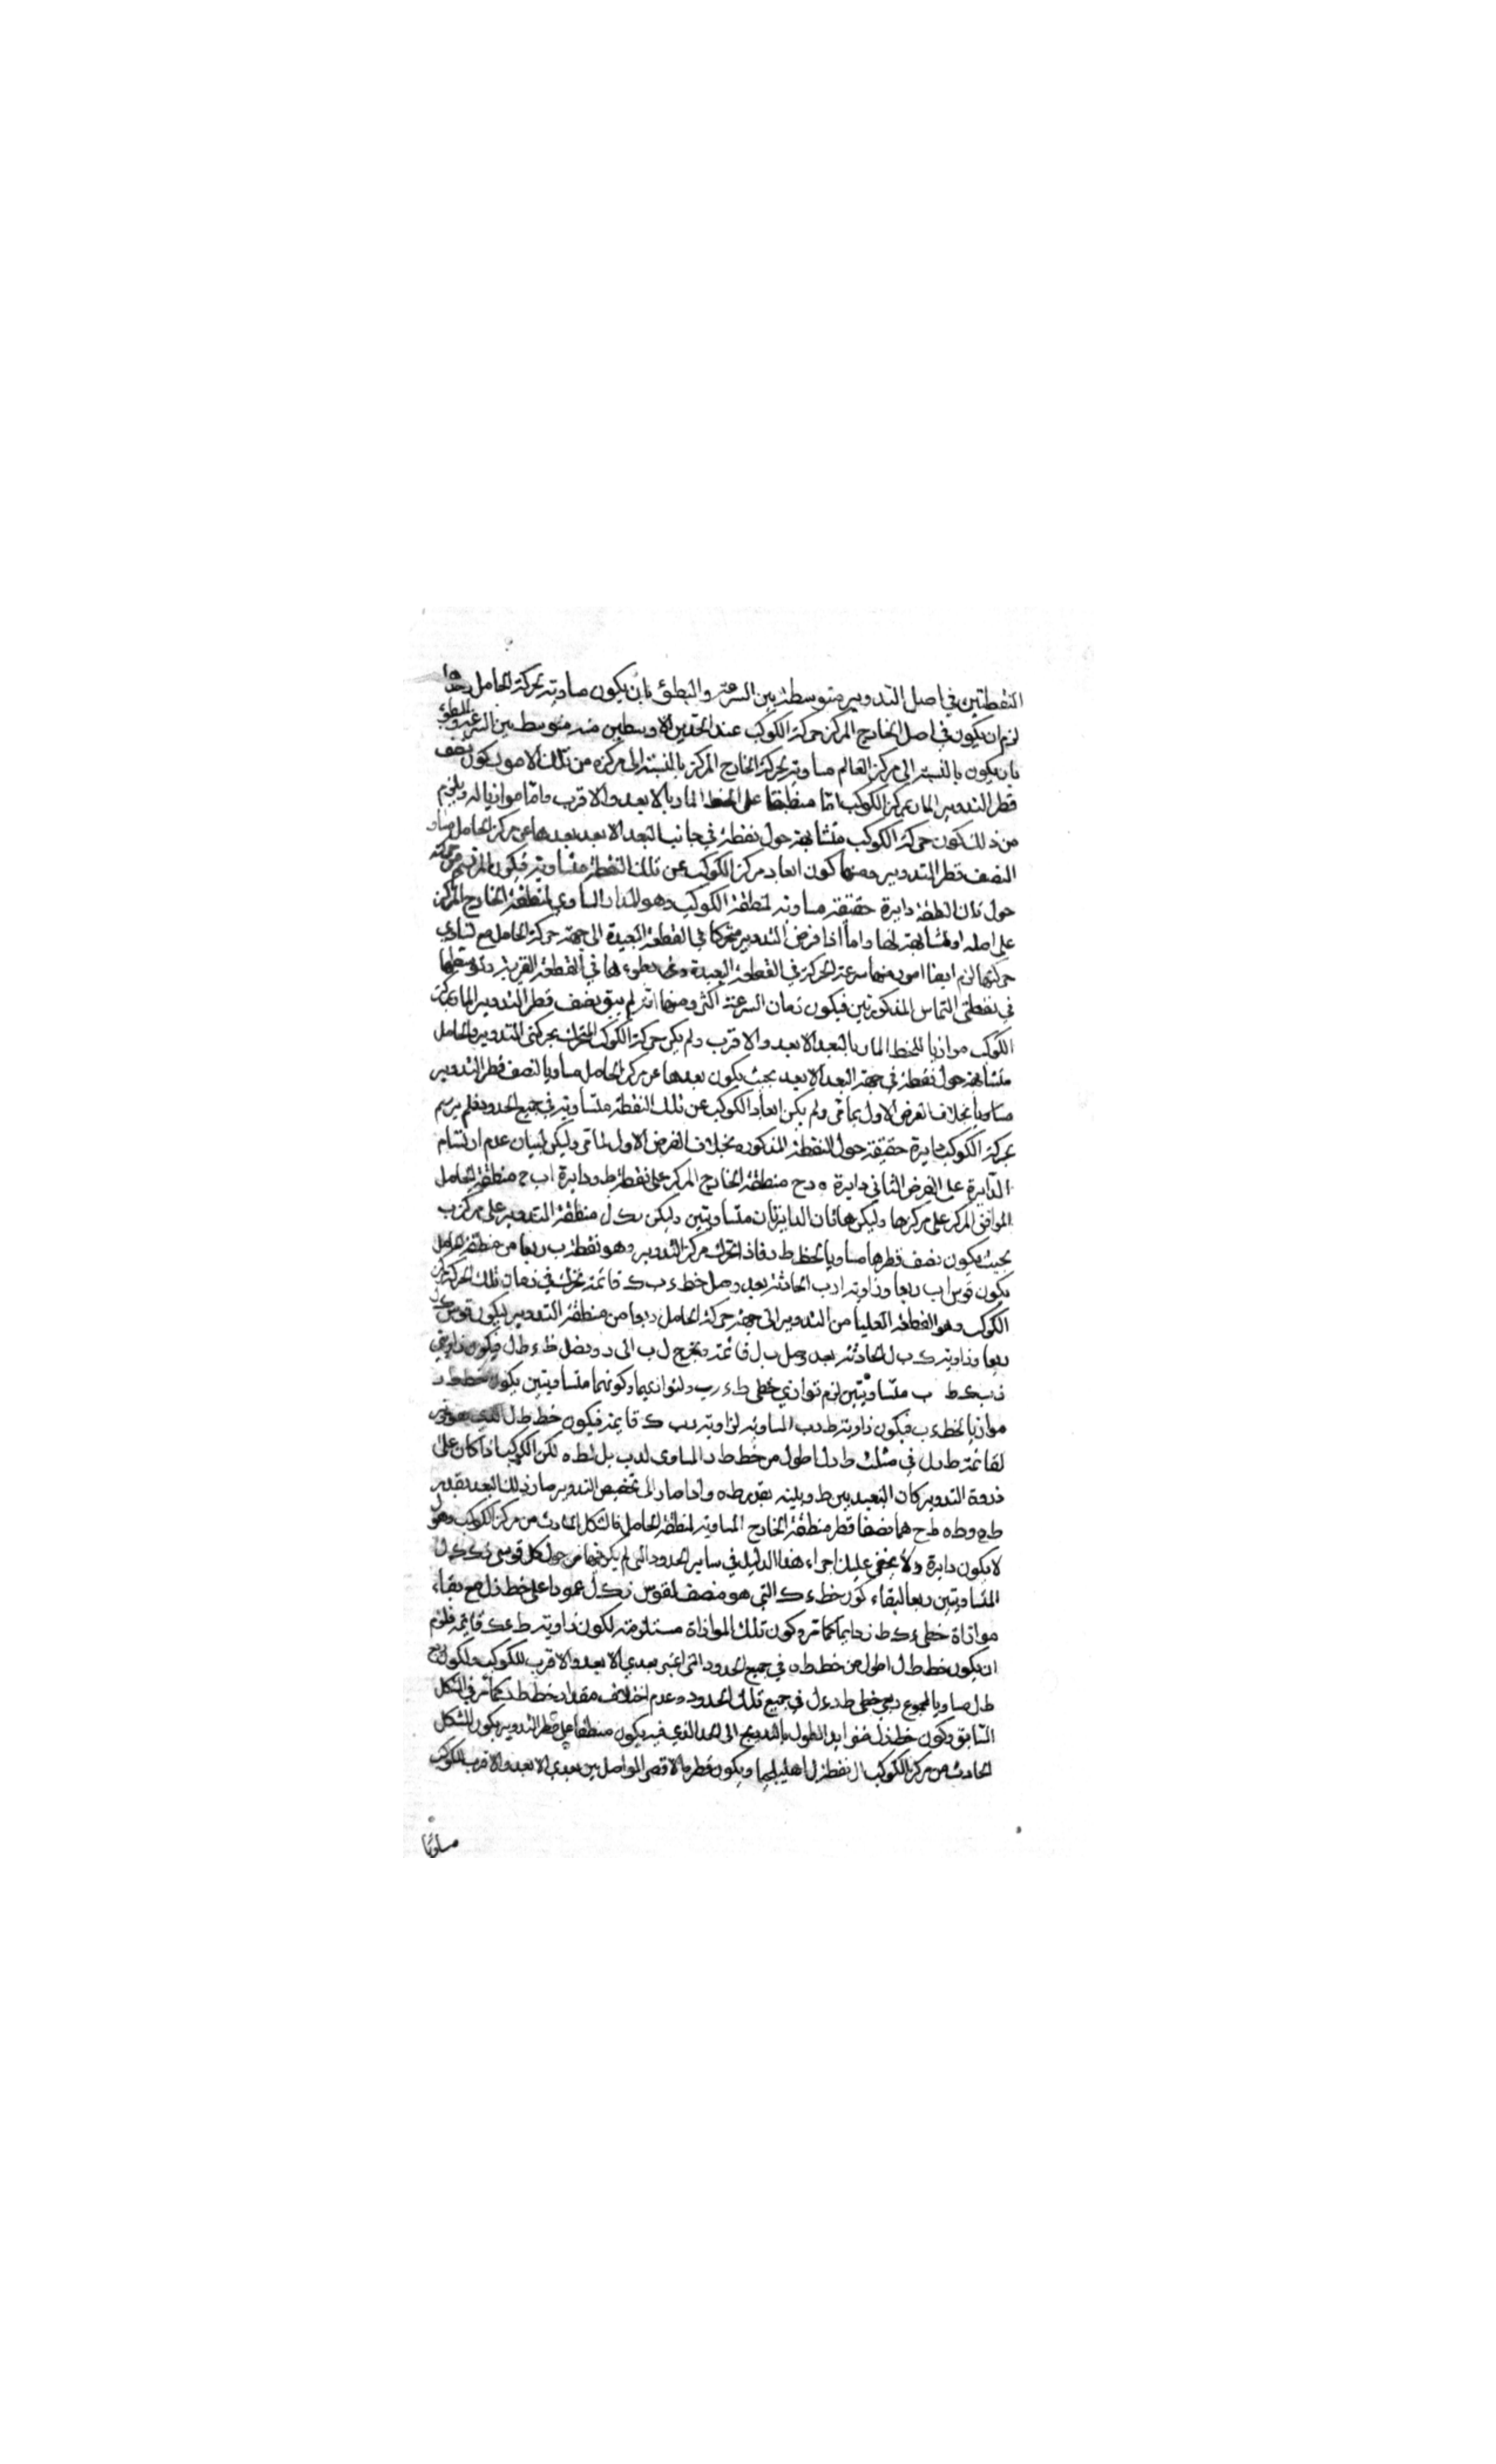 النقطتين في اصل التدوير متوسطة بين السرعة والبطؤ بان يكون مساوية لحركة الحامل
لزم ان يكون في اصل الخارج المركز حركة الكوكب عند الحدين الاوسطين منه متوسط بين السرعة والبطؤ
بان يكون بالنسبة الى مركز العالم مساوية لحركة الخارج المركز بالنسبة الى مركزه من تلك الامور كون نصف
قطر التدوير المار بمركز الكوكب امّا منطبقا على الخط المار بالابعد والاقرب وامّا موازيا له ويلزم
من ذلك كون حركة الكوكب متشابهة حول نقطة في جانب البعد الابعد بعدها عن مركز الحامل مساو
النصف قطر التدوير ومنها كون ابعاد مركز الكوكب عن تلك النقطة متساوية فيكون المرتسم من حركته
حول تلك النقطة دايرة حقيقة مساوية لمنطقة الكوكب وهو المدار المساوي لمنطقة الخارج المركز
على اصله او مشابهة لها واما اذا فرض التدوير متحركا في القطعة البعيدة الى جهة حركة الحامل مع تساوي
حركتهما لزم ايضا امور منها سرعة الحركة في القطعة البعيدة وبطوءها في القطعة القريبة وتوسطها
في نقطتي التماس المذكورتين فيكون زمان السرعة اكثر ومنها انه لم يبق نصف قطر التدوير المار بمركز
الكوكب موازيا للخط المار بالبعد الابعد والاقرب ولم يكن حركة الكوكب المتحرك بحركتي التدوير والحامل
متشابهة حول نقطة في جهة البعد الابعد بحيث يكون بعدها عن مركز الحامل مساويا لنصف قطر التدوير
مساويا بخلاف الفرض الاول بما في ولم يكن ابعاد الكوكب عن تلك النقطة متساوية في جميع الحدود فلم يرسم
بحركة الكوكب دايرة حقيقة حول النقطة المذكورة بخلاف الفرض الاول لما في وليكن لبيان عدم ارتسام
الدايرة على الفرض الثاني دايرة ه د ح منطقة الخارج المركز على نقطة ط ودايرة ا ب ج منطقة الحامل
الموافق المركز على مركزها وليكن هاتان الدايرتان متساويتين وليكن ى ك ل منطقة التدوير على مركز ب
بحيث يكون نصف قطرها مساويا لخط ط د فاذا تحرك مركز التدوير وهو نقطة ب ربعا من منطقة الحامل
يكون قوس ا ب ربعا وزاوية ا د ب الحادثة بعد وصل خط ء ب ك قائمة تحرك في زمان تلك الحركة مركز
الكوكب وهو القطعة العليا من التدوير الى جهة حركة الحامل ربعا من منطقة التدوير ليكون قوس ك ل
ربعا وزاوية ك ب ل الحادثة بعد وصل ب ل قائمة ونخرج ل ب الى ر ونصل ط ء ط ل فيكون زاويتي
ر ب ء ط ب متساويتين لزم توازي خطي ط ء ر ب ولتوازيهما وكونهما متساويتين يكون خط ط ر
موازيا لخط ء ب فيكون زاوية ط ر ب المساوية لزاوية ر ب ك قايمة فيكون خط ط ل الذي هو وتر
لقائمة ط ر ل في مثلث ط ر ل اطول من خط ط ر المساوى لد ب بل لط ه لكن الكوكب اذا كان على
ذروة التدوير كان البعد بين ط وبينه بقدر ط ه واذا صار الى حضيض التدوير صار ذلك البعد بقدر
ط ح وط ه ط ح هما نصفا قطر منطقة الخارج المساوية لمنطقة الحامل فالشكل الحادث من مركز الكوكب وهو ل
لا يكون دايرة ولا يخفى عليك اجراء هذا الدليل في ساير الحدود التى لم يكن فيها من حول كل قوسي ر ك ك ل
المتساويتين ربعا لبقاء كون خط ء ك التي هو منصف لقوس ر ك ل عمودا على خط ر ل مع بقاء
موازاة خطي ء ك ط ر دايما كما مر وكون تلك الموازاة مستلزمة لكون زاوية ط ء ك قائمة فلزم
ان يكون خط ط ل اطول من خط ط ه في جميع الحدود التى غير بعدي الابعد والاقرب للكوكب ولكون مربع
ط ل مساويا لمجموع مربعي خطي ط ر ر ل في جميع تلك الحدود وعدم اختلاف مقدار خط ط ر كما مر في الشكل
السابق وكون خط ر ل متزايد الطول بالتدريج الى الحد الذي فيه يكون منطبقا على قطر التدوير يكون الشكل
الحادث من مركز الكوكب ال نقطة ل اهليلجيا ويكون قطره الاقصر الواصل بين بعدي الابعد والاقرب للكوكب
مساويا